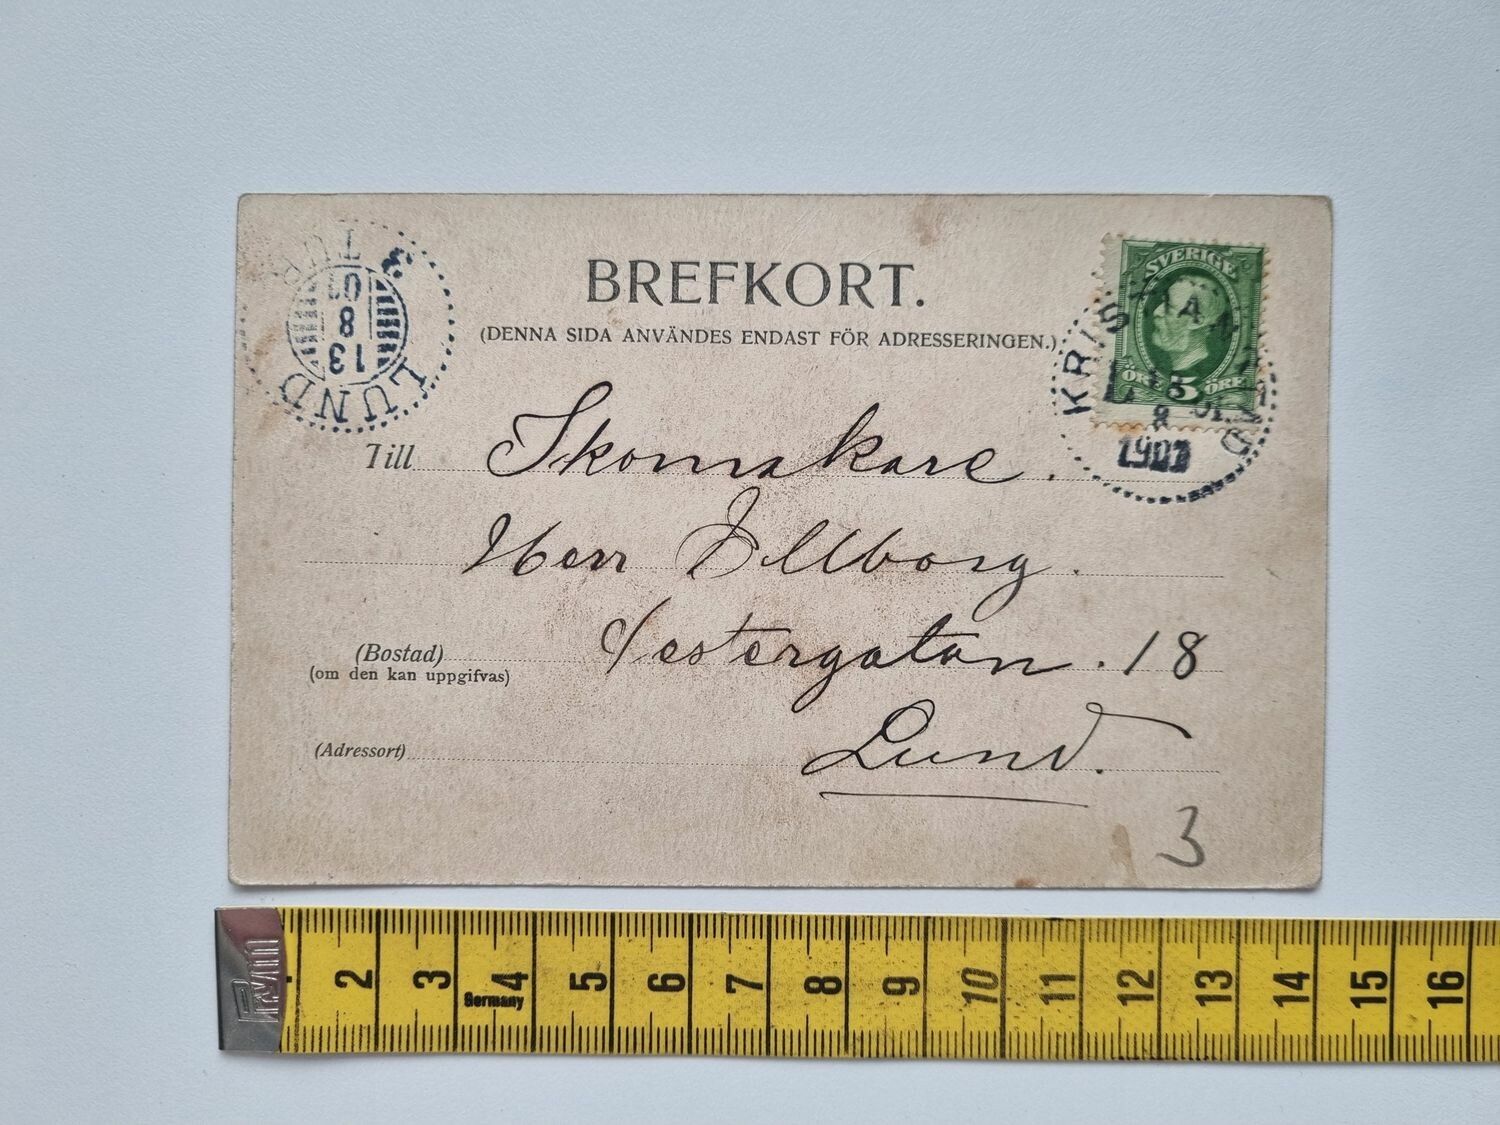 BREFKORT.
(DENNA SIDA ANVÄNDES ENDAST FÖR ADRESSERINGEN.)
SVERIGE
ÖRE 5 ÖRE
1901
LUND
13
8
01
Till Skomakare.
Herr Illborg.
(Bostad) Vestergatan. 18
(om den kan uppgifvas)
(Adressort) Lund.
3
2 3 4 5 6 7 8 9 10 11 12 13 14 15 16
Germany